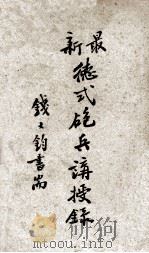 最新
德式砲兵講授錄
錢大鈞書耑